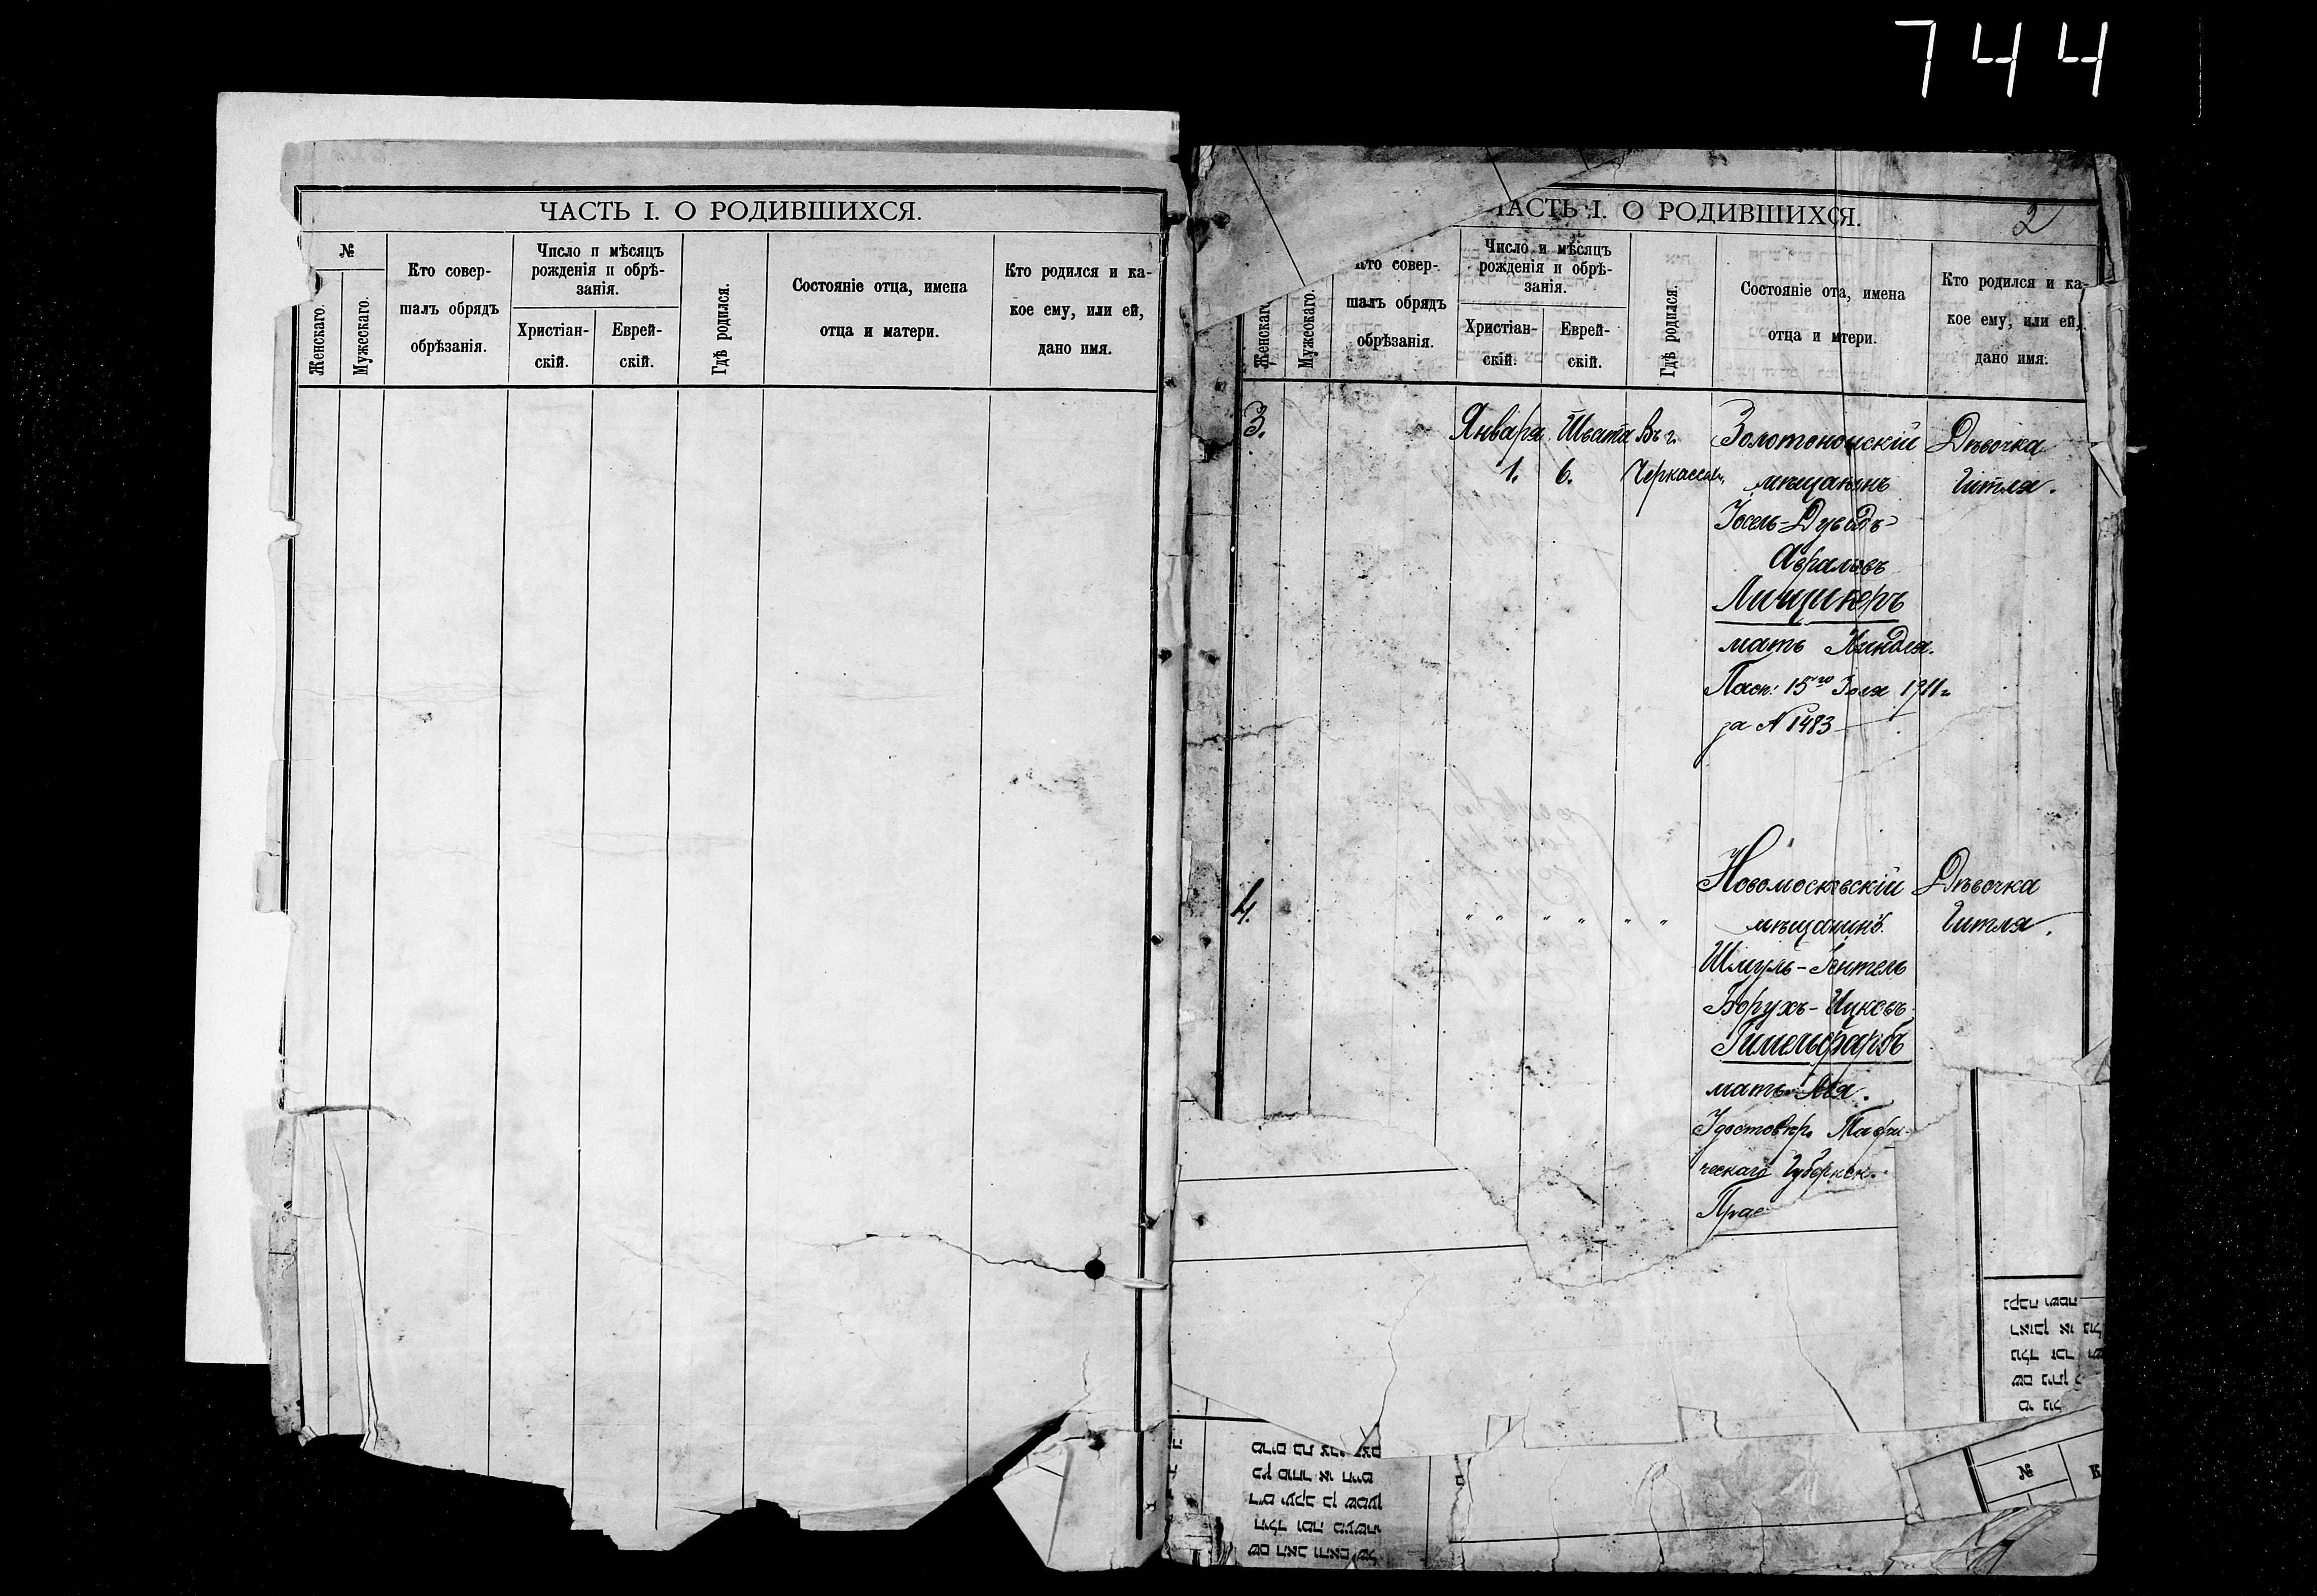 744
ЧАСТЬ I. О РОДИВШИХСЯ.
№
Женскаго.
Мужескаго.
Кто совер-
шалъ обрядъ
обрѣзанія.
Число и мѣсяцъ
рожденія и обрѣ-
занія.
Христіан-
скій.
Еврей-
скій.
Гдѣ родился.
Состояніе отца, имена
отца и матери.
Кто родился и ка-
кое ему, или ей,
дано имя.
ЧАСТЬ I. О РОДИВШИХСЯ.
2
Женскаго
Мужескаго.
Кто совер-
шалъ обрядъ
обрѣзанія.
Число и мѣсяцъ
рожденія и обрѣ-
занія.
Христіан-
скій.
Еврей-
скій.
Гдѣ родился.
Состояніе ота, имена
отца и мтери.
Кто родился и ка-
кое ему, или ей,
дано имя.
3.
Января
1.
Швата
6.
Въ г.
Черкассахъ
Золотоношскій
мѣщанинъ
Іосель-Дувидъ-
Аврамовъ
мать Киндля.
Пасп: 15го Іюля 1911 г.
за № 1483
Дѣвочка
Гитля.
4.
" " " " " "
Новомосковскій
мѣщанинъ
Шмуль-Кентель
Борухъ-Ицковъ
Гимельфарбъ
мать Лея.
Удостовѣр. Таври-
ческаго Губернск.
Прав
Дѣвочка
Гитля.
נקבה ושמה
ראובן או
נולד זכר
שם ניתן
מי נול
№